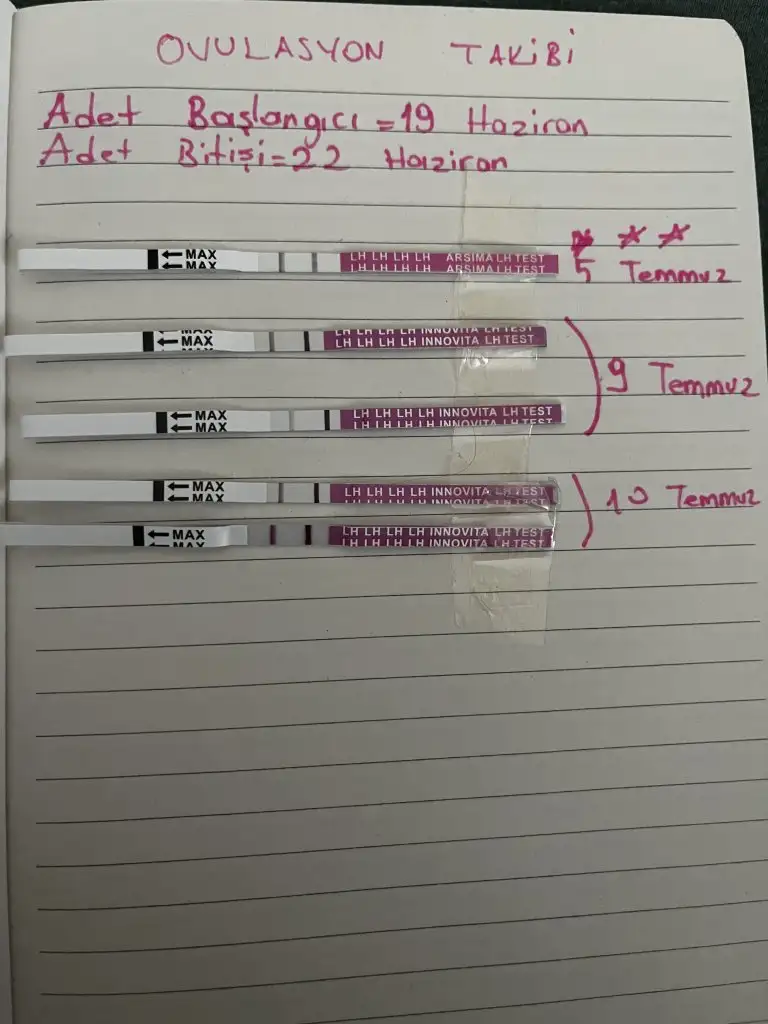 OVULASYON TAKİBİ
Adet Başlangıcı = 19 Haziran
Adet Bitişi = 22 Haziran
MAX LH LH LH LH ARSIMA LH TEST
MAX LH LH LH LH ARSIMA LH TEST
5 Temmuz
MAX LH LH LH LH INNOVITA LH TEST
MAX LH LH LH LH INNOVITA LH TEST
9 Temmuz
MAX LH LH LH LH INNOVITA LH TEST
MAX LH LH LH LH INNOVITA LH TEST
MAX LH LH LH LH INNOVITA LH TEST
MAX LH LH LH LH INNOVITA LH TEST
10 Temmuz
MAX LH LH LH LH INNOVITA LH TEST
MAX LH LH LH LH INNOVITA LH TEST